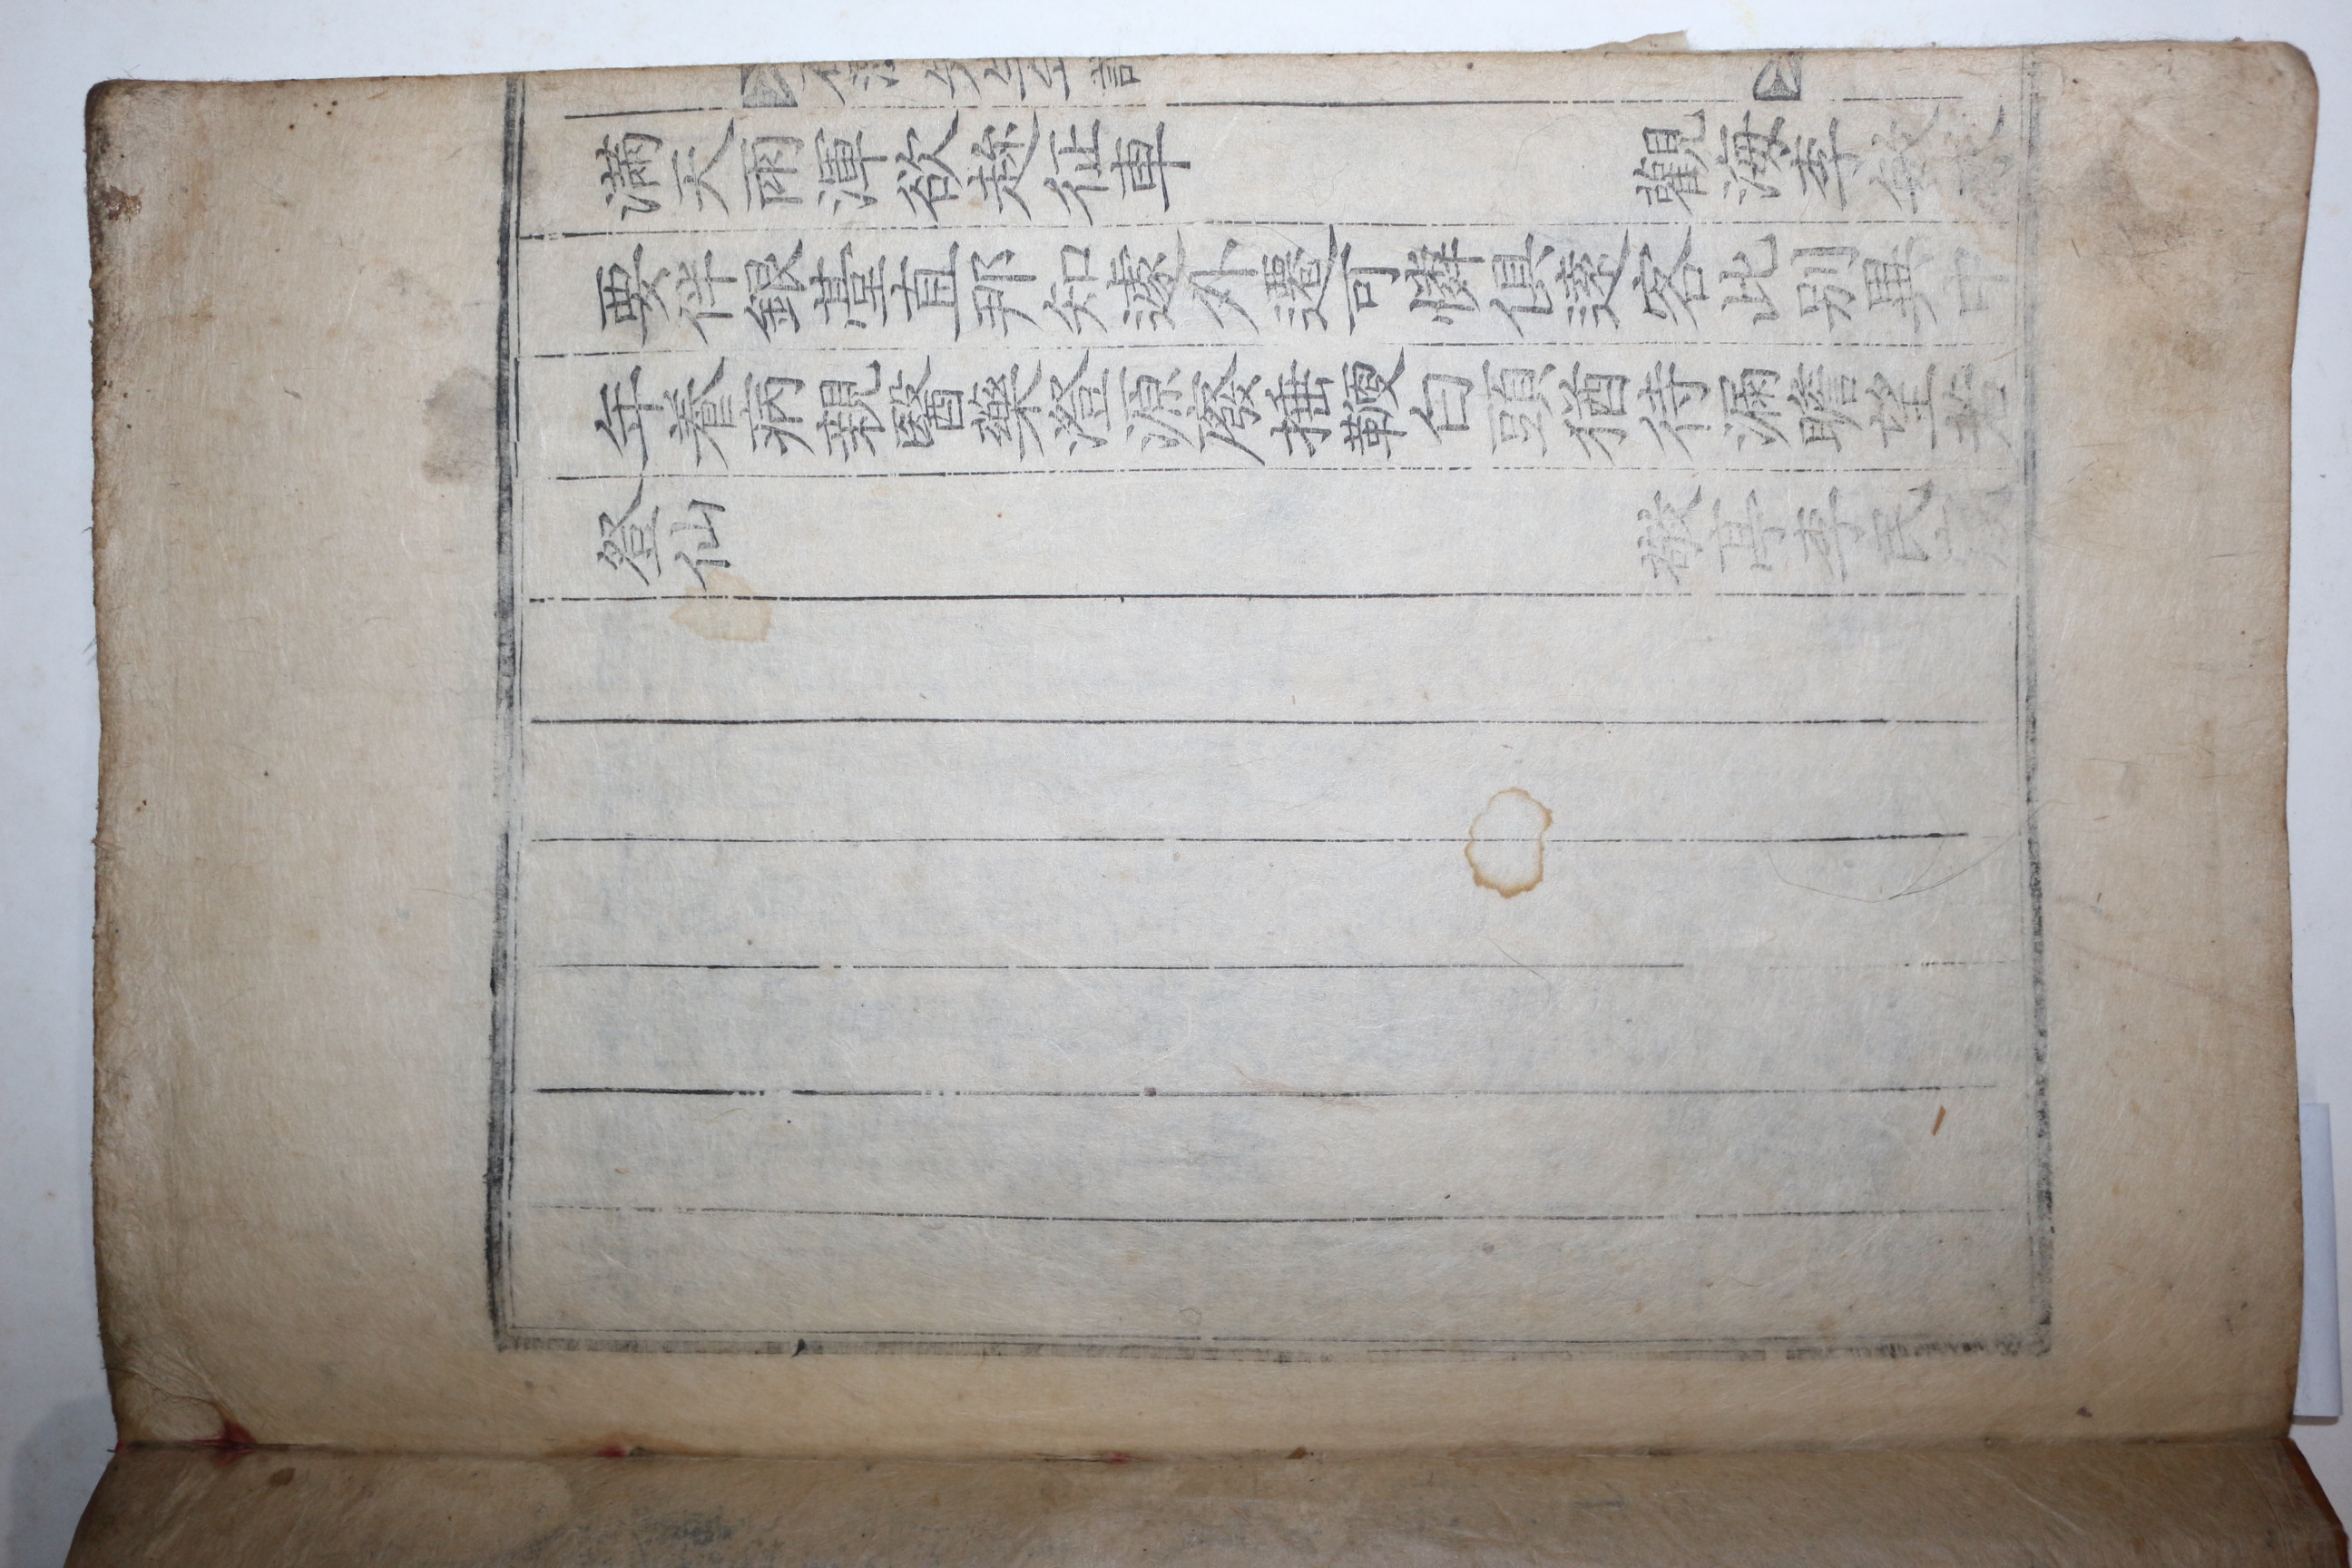 先生
滿天雨渾欲趂征車 觀海李敏求
要伴銀臺直那知遽外遷可憐俱遠客此別異中
年養病親醫藥澄源廢捶鞭白頭猶待漏瞻望若
登仙 敬亭李民宬